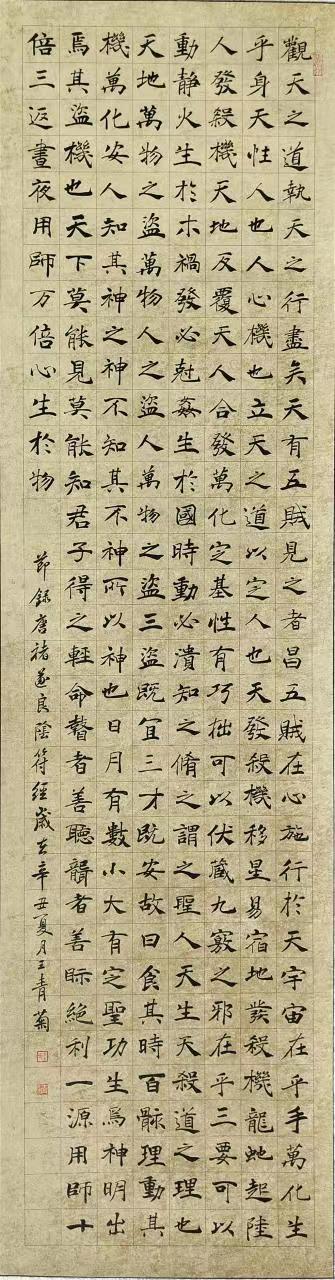 觀天之道執天之行盡矣天有五賊見之者昌五賊在心施行於天宇宙在乎手萬化生
乎身天性人也人心機也立天之道以定人也天發殺機移星易宿地發殺機龍虵起陸
人發殺機天地反覆天人合發萬化定基性有巧拙可以伏藏九竅之邪在乎三要可以
動靜火生於木禍發必尅姦生於國時動必潰知之脩之謂之聖人天生天殺道之理也
天地萬物之盜萬物人之盜人萬物之盜三盜既宜三才既安故曰食其時百骸理動其
機萬化安人知其神之神不知其不神所以神也日月有數小大有定聖功生焉神明出
焉其盜機也天下莫能見莫能知君子得之輕命瞽者善聽聾者善眎絕利一源用師十
倍三返晝夜用師万倍心生於物
節錄唐褚遂良陰符經歲在辛丑夏月王青菊